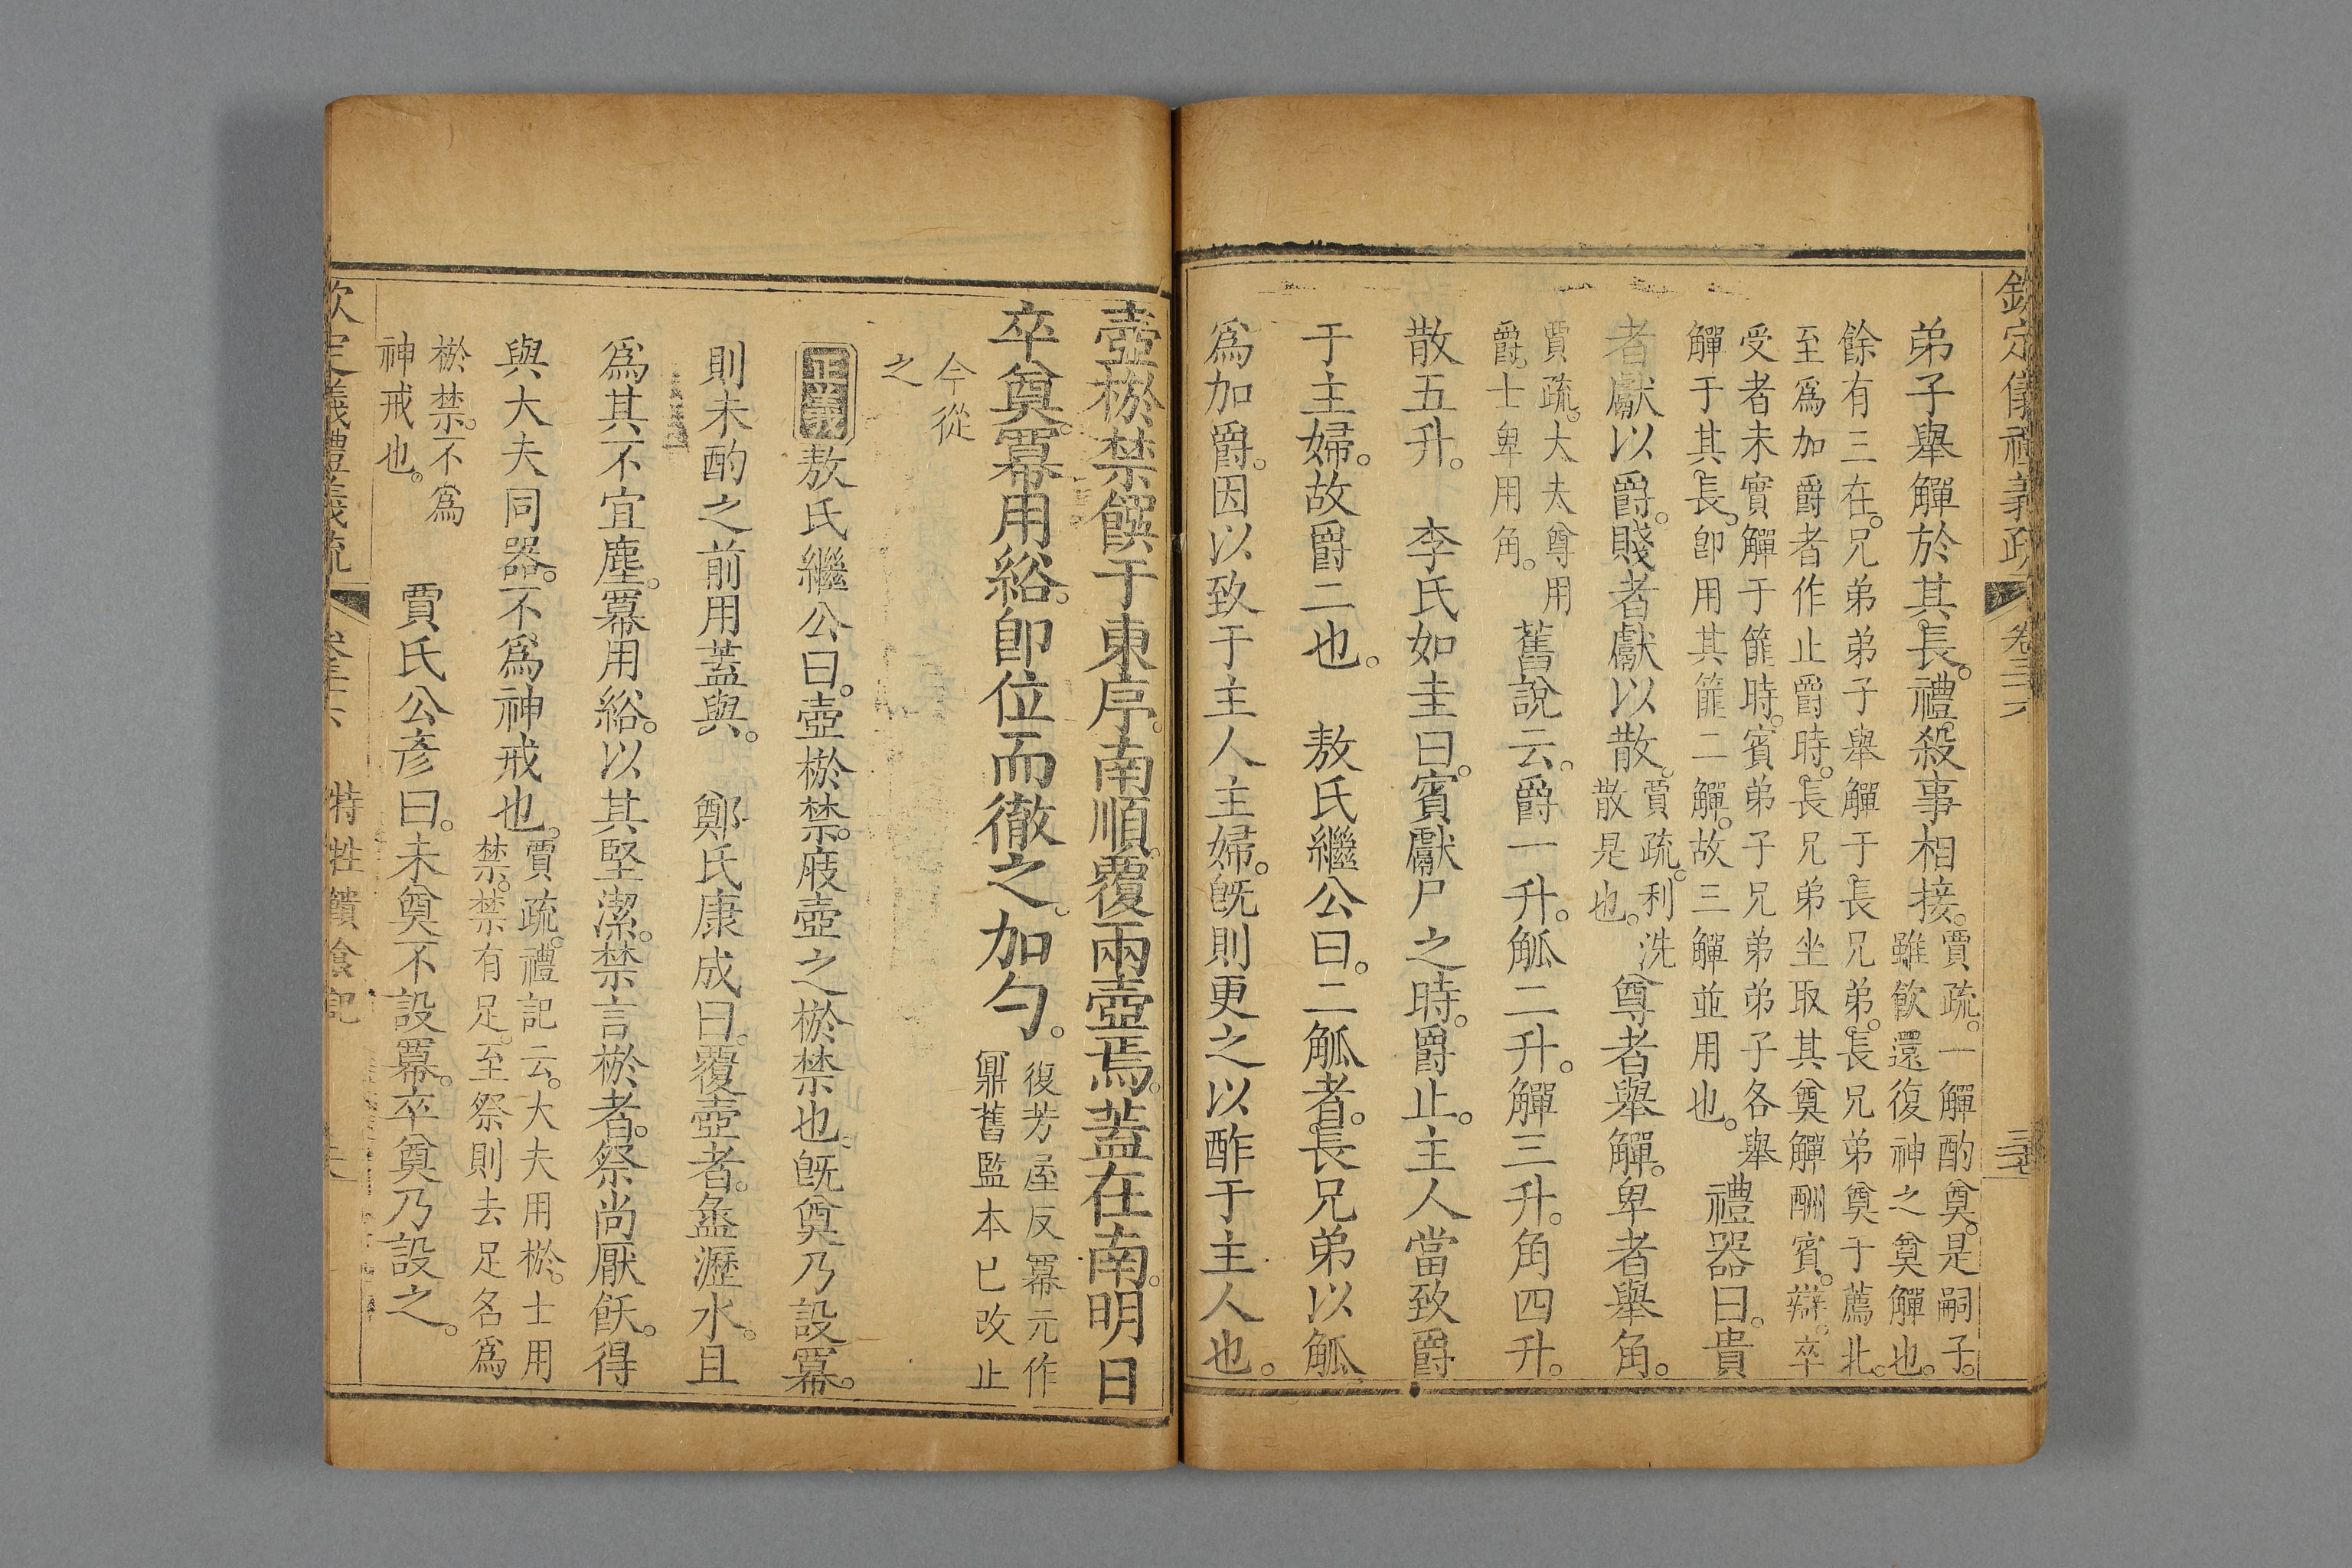 欽定儀禮義疏 卷三十六
弟子舉觶於其長。禮殺事相接。賈疏。一觶酌奠。是嗣子。
雖飲還復神之奠觶也。
餘有三在。兄弟弟子舉觶于長兄弟。長兄弟奠于薦北。
至爲加爵者作止爵時。長兄弟坐取其奠觶酬賓。辯。卒
受者未實觶于篚時。賓弟子兄弟弟子各舉
觶于其長。卽用其篚二觶。故三觶並用也。
禮器曰。貴
者獻以爵。賤者獻以散。賈疏。利洗
散是也。
尊者舉觶。卑者舉角。
賈疏。大夫尊用
爵。士卑用角。
舊說云。爵一升。觚二升。觶三升。角四升。
散五升。 李氏如圭曰。賓獻尸之時。爵止。主人當致爵
于主婦。故爵二也。 敖氏繼公曰。二觚者。長兄弟以觚
爲加爵。因以致于主人主婦。旣則更之以酢于主人也。
壺棜禁饌于東序。南順。覆兩壺焉。蓋在南。明日
卒奠。冪用綌。卽位而徹之。加勺。復芳屋反冪元作
鼏舊監本已改止
今從
之
正義敖氏繼公曰。壺棜禁。庪壺之棜禁也。旣奠乃設冪。
則未酌之前用蓋與。 鄭氏康成曰。覆壺者。盝瀝水。且
爲其不宜塵。冪用綌。以其堅潔。禁言棜者。祭尚厭飫。得
與大夫同器。不爲神戒也。賈疏。禮記云。大夫用棜。士用
禁。禁有足。至祭則去足名爲
棜禁。不爲
神戒也。
賈氏公彥曰。未奠不設冪。卒奠乃設之。
欽定儀禮義疏 卷三十六 特牲饋食記